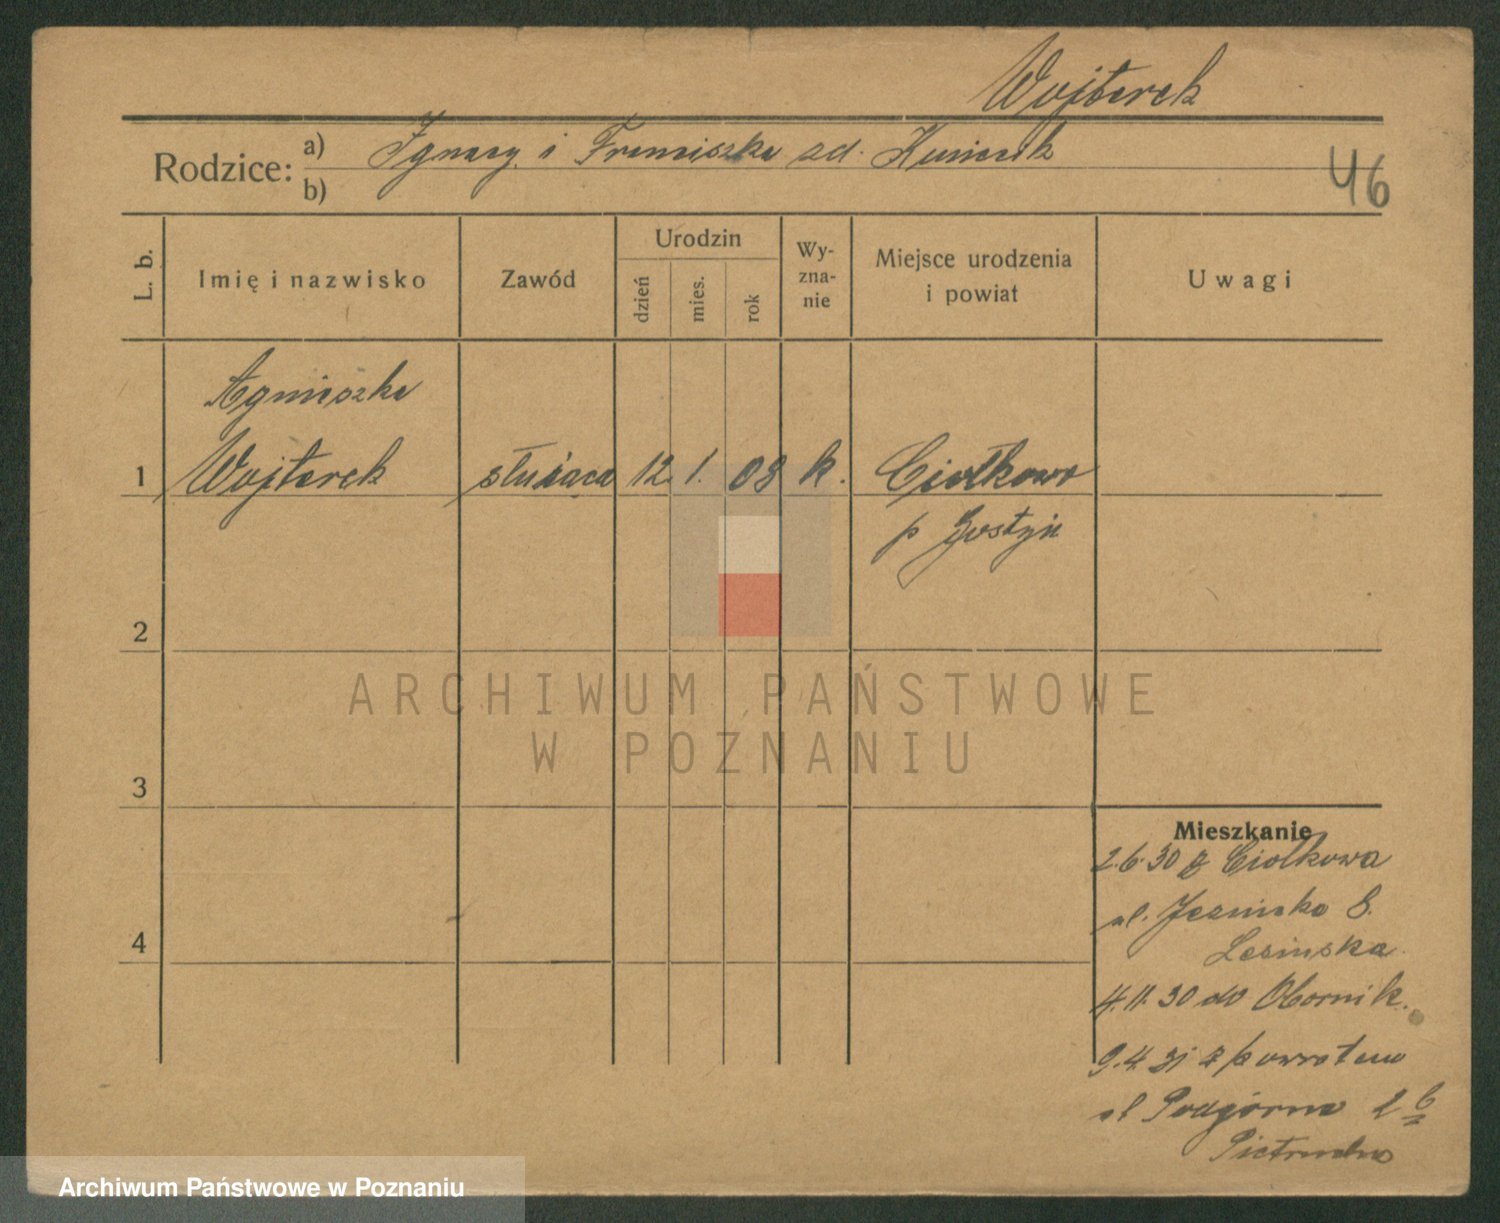 Wojterek
Rodzice: a) Ignacy i Franciszka zd. Kusiak
b)
46
L. b.
Imię i nazwisko
Zawód
Urodzin
dzień
mies.
rok
Wy-
zna-
nie
Miejsce urodzenia
i powiat
Uwagi
Agnieszka
1 Wojterek służąca 12. 1. 08 k. Ciołkowo
p Gostyń
2
ARCHIWUM PAŃSTWOWE
W POZNANIU
3
Mieszkanie
2.6.30 z Ciołkowa
ul. 8.
4
Lesinska
4.11.30 do Obornik.
9.4.31 z powrotem
ul Podgórna 2 b
Archiwum Państwowe w Poznaniu